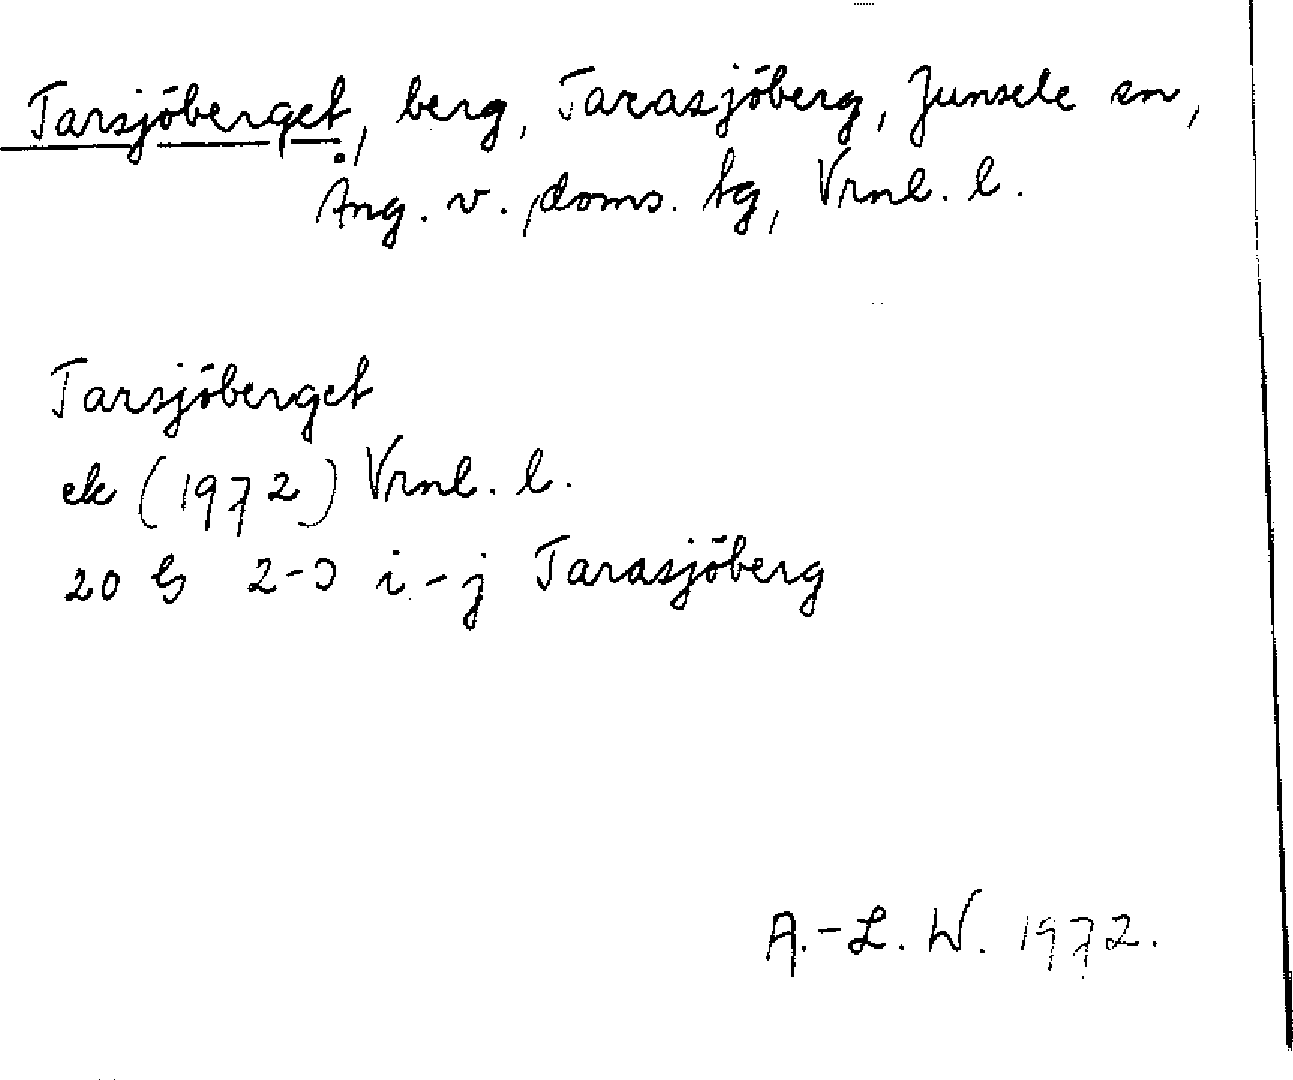 Tarsjöberget, berg, Tarasjöberg, Junsele sn,
Ång. v. doms. tg, Vrnl. l.
Tarsjöberget
ek (1972) Vrnl. l.
20 G 2-3 i-j Tarasjöberg
A.-L. W. 1972.